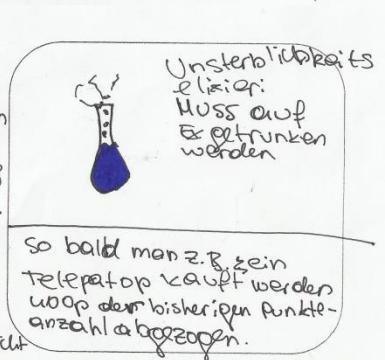 Unsterblichkeits
elixier:
Muss auf
Ex getrunken
werden
so bald man z.B. ein
Telepator kauft werden
400p der bisherigen Punkte-
anzahl abgezogen.
cht